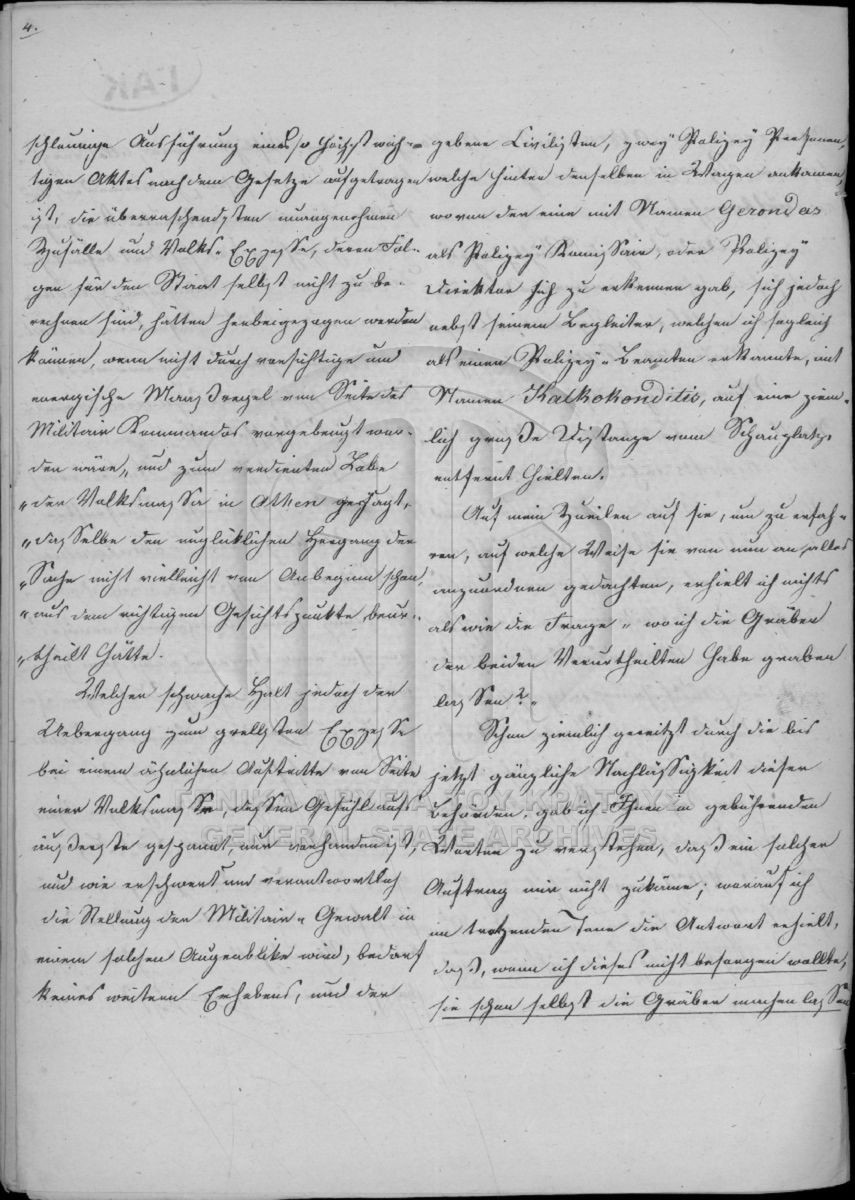 4.
schleunige Ausführung eines so höchst wich-
tigen Aktes nach dem Gesetze aufgetragen
ist, die überraschendsten unangenehmen
Zufälle und Volks-Exzesse, deren Fol-
gen für den Staat selbst nicht zu be-
rechnen sind, hätten herbeigezogen werden
können, wenn nicht durch vorsichtige und
energische Maaßregel von Seite des
Militair Kommandos vorgebeugt wor-
den wäre, und zum verdienten Lobe
„der Volksmasse in Athen gesagt,
„dasselbe den unglücklichen Hergang der
„Sache nicht vielleicht von Anbeginn schon,
„aus dem richtigen Gesichtspunkte beur-
„theilt hätte.
Welcher schwache Halt jedoch der
Uebergang zum grellsten Exzesse
bei einem ähnlichen Auftritte von Seite
einer Volksmasse, dessen Gefühl aufs
äußerste gespannt, nur vorhanden ist,
und wie erschwert und verantwortlich
die Stellung der Militair-Gewalt in
einem solchen Augenblike wird, bedarf
keines weitern Erhebens, und der
gebene Civilisten, zwey Polizey Personen,
welche hinter denselben in Wägen ankamen,
wovon der eine mit Namen Gerondas
als Polizey Komissair, oder Polizey
Direktor sich zu erkennen gab, sich jedoch
nebst seinem Begleiter, welchen ich sogleich
als einen Polizey-Beamten erkannte, mit
Namen Kalkokonditis, auf eine ziem-
lich große Distanze vom Schauplatze
entfernt hielten.
Auf mein Zueilen auf sie, um zu erfah-
ren, auf welche Weise sie von nun an alles
anzuordnen gedachten, erhielt ich nichts
als wie die Frage „wo ich die Gräber
der beiden Verurtheilten habe graben
lassen?„
Schon ziemlich gereitzt durch die bis
jetzt gänzliche Nachlässigkeit dieser
Behörden, gab ich Ihnen in gebührenden
Worten zu verstehen, daß ein solcher
Auftrag mir nicht zukäme; worauf ich
im trotzenden Tone die Antwort erhielt,
daß, wenn ich dieses nicht besorgen wollte,
sie schon selbst die Gräber machen lassen
ΓΑΚ
ΓΕΝΙΚΑ ΑΡΧΕΙΑ ΤΟΥ ΚΡΑΤΟΥΣ
GENERAL STATE ARCHIVES